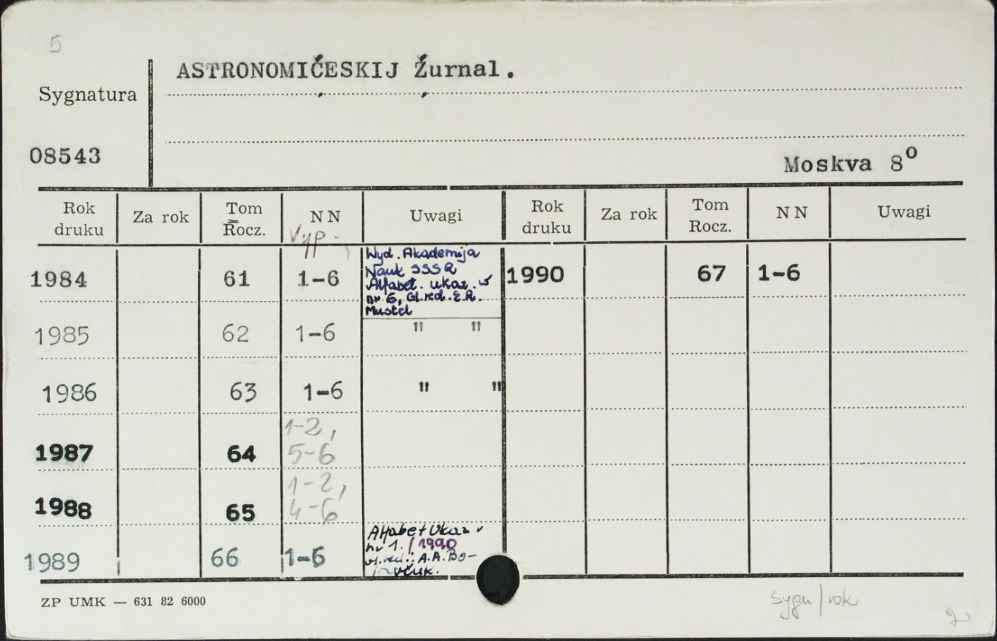 5
ASTRONOMIČESKIJ Žurnal.
Sygnatura
08543
Moskva 8⁰
Rok druku Za rok Tom Rocz. NN Uwagi Rok druku Za rok Tom Rocz. NN Uwagi
Vyp.
1984 61 1-6 Wyd. Akademija 1990 67 1-6
Nauk SSSR
Alfabet. ukaz. w
nr 6, Gl. red. E.R.
Mustel
1985 62 1-6 " "
1986 63 1-6 " "
1987 64 1-2, 5-6
1988 65 1-2, 4-6
1989 66 1-6 Alfabet Ukaz v
nr 1. / 1990
red.: A.A. Bo-
ZP UMK — 631 82 6000
sygn/rok